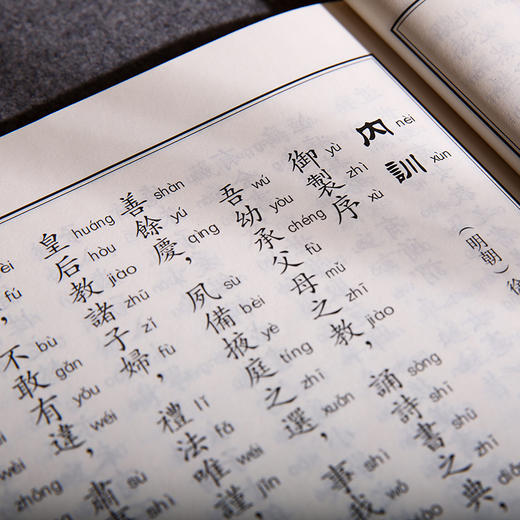 內訓
nèi xùn
(明朝) 徐
御製序
yù zhì xù
吾幼承父母之教,誦詩書之典,
wú yòu chéng fù mǔ zhī jiào sòng shī shū zhī
善餘慶,夙備掖庭之選,事我
shàn yú qìng sù bèi yè tíng zhī xuǎn shì wǒ
皇后教諸子婦,禮法唯謹,
huáng hòu jiào zhū zǐ fù lǐ fǎ wéi jǐn
不敢有違,肅
bù gǎn yǒu wéi